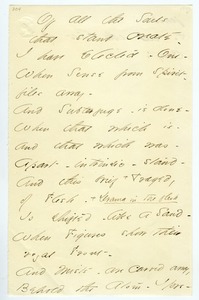 Of all the Souls
that stand create -
I have Elected - One -
When Sense from Spirit -
files away -
And Subterfuge - is done -
When that which is -
and that which was -
Apart - intrinsic - stand -
And this brief Tragedy
of Flesh -
Is shifted - like a Sand -
When Figures show their
royal Front -
And Mists - are carved away,
Behold the Atom - I pre-